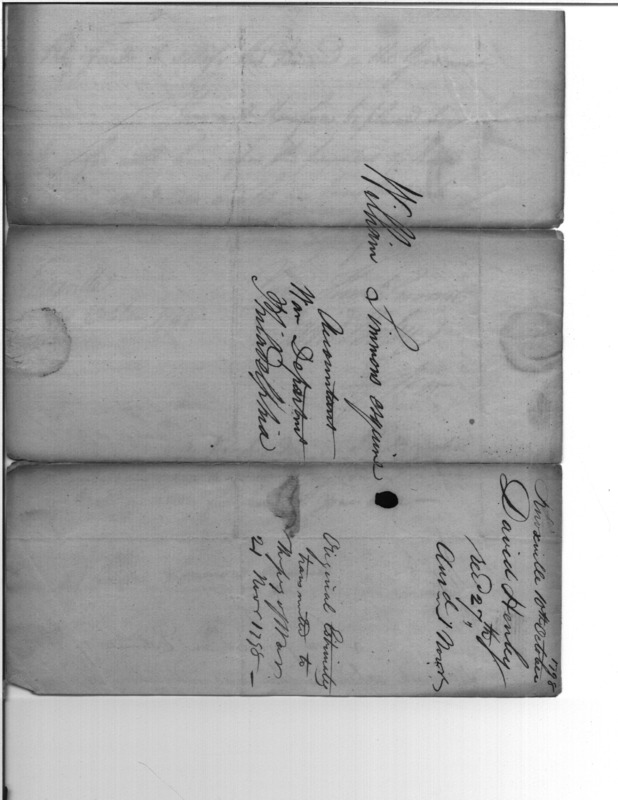 William Simmons esquire
Accountant
War Departmt
Philadelphia
Knoxville 10th October 1798
David Henley
recd 27th
Ansd 1 Novr
Original
transmitted to
Secy of War
21 Novr 1798